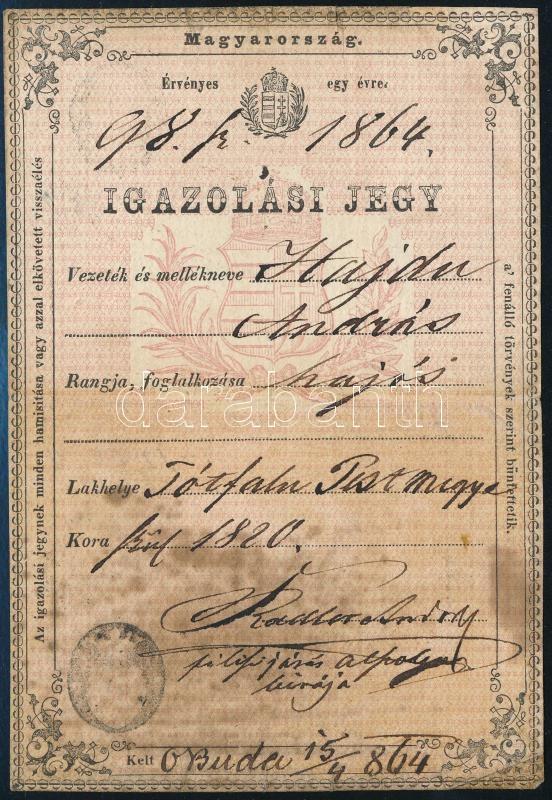 Magyarország.
Érvényes egy évre.
98. 1864.
IGAZOLÁSI JEGY
Vezeték és mellékneve Hajdu
András
Rangja, foglalkozása hajós
Lakhelye Tótfalu Pest megye
Kora 1820.
járás
birája
Kelt O Buda 15/4 864
Az igazolási jegynek minden hamisítása vagy azzal elkövetett visszaélés
a' fenálló törvények szerint büntettetik.
darabanth